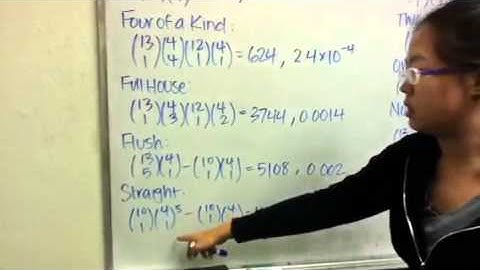 Four of a Kind:
(13 1)(4 4)(12 1)(4 1) = 624, 2.4x10⁻⁴
Full House:
(13 1)(4 3)(12 1)(4 2) = 3744, 0.0014
Flush:
(13 5)(4 1) - (10 1)(4 1) = 5108, 0.002
Straight:
(10 1)(4 1)⁵ - (10 1)(4 1) =